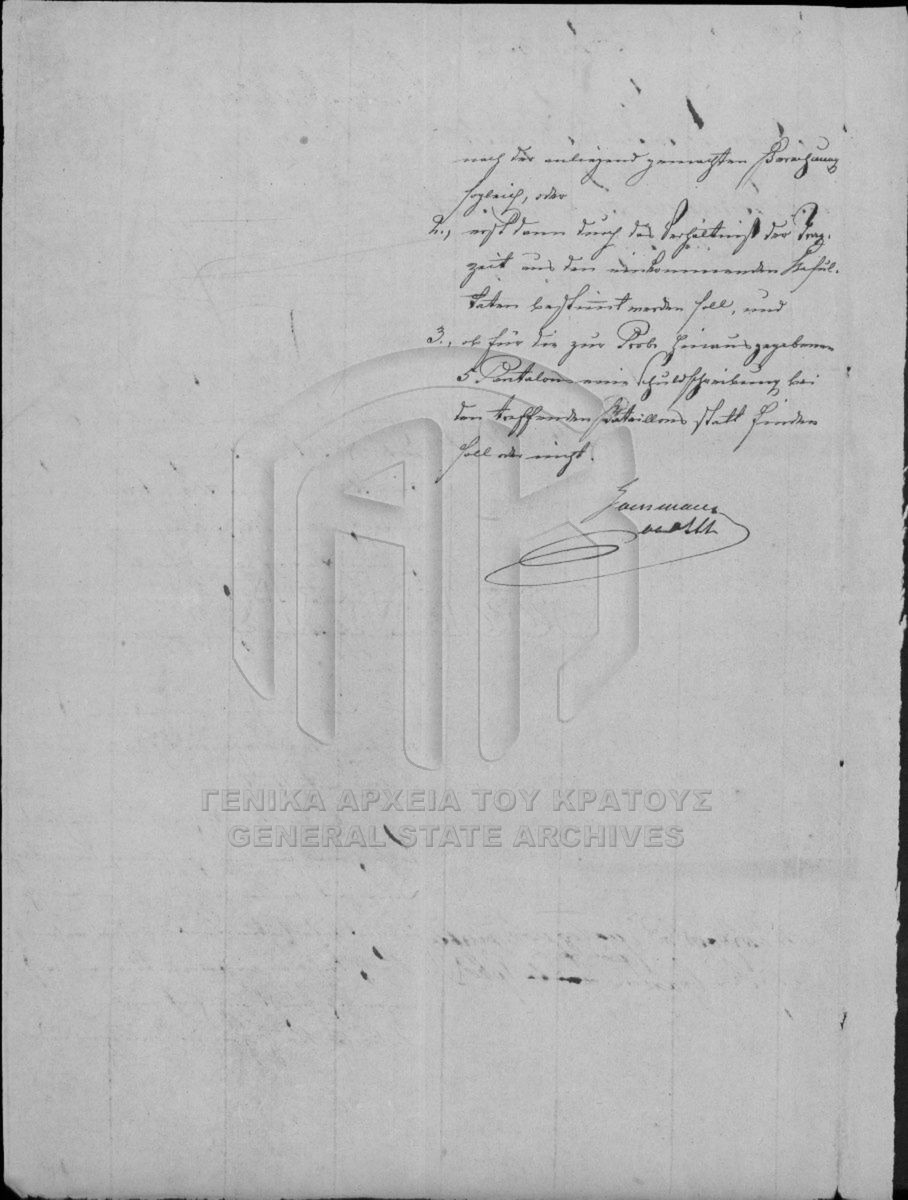 nach der anliegend gemachten Berechnung
sogleich, oder
2., erst dann durch das Verhältniß der Trag-
zeit aus den einkommenden Resul-
taten bestimmt werden soll, und
3., ob für die zur Probe hinausgegebenen
5 Pantalons eine Schuldschreibung bei
den treffenden Bataillons statt finden
soll oder nicht.
ΓΕΝΙΚΑ ΑΡΧΕΙΑ ΤΟΥ ΚΡΑΤΟΥΣ
GENERAL STATE ARCHIVES